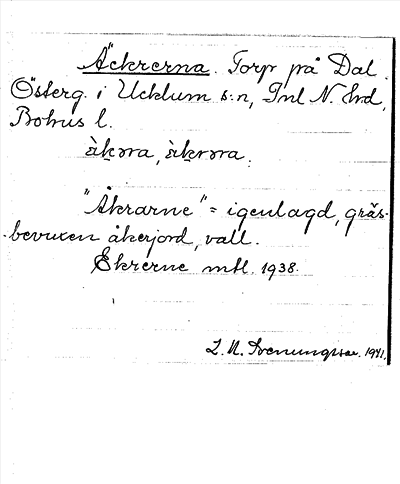 Äckrerna. Torp på Dal
Österg. i Ucklum s:n, Inl N. Hrd,
Bohus l.
àkərra, àkrərra.
"Åkrarne" = igenlagd, gräs-
bevuxen åkerjord, vall.
Ekrerne mtl. 1938.
1941.